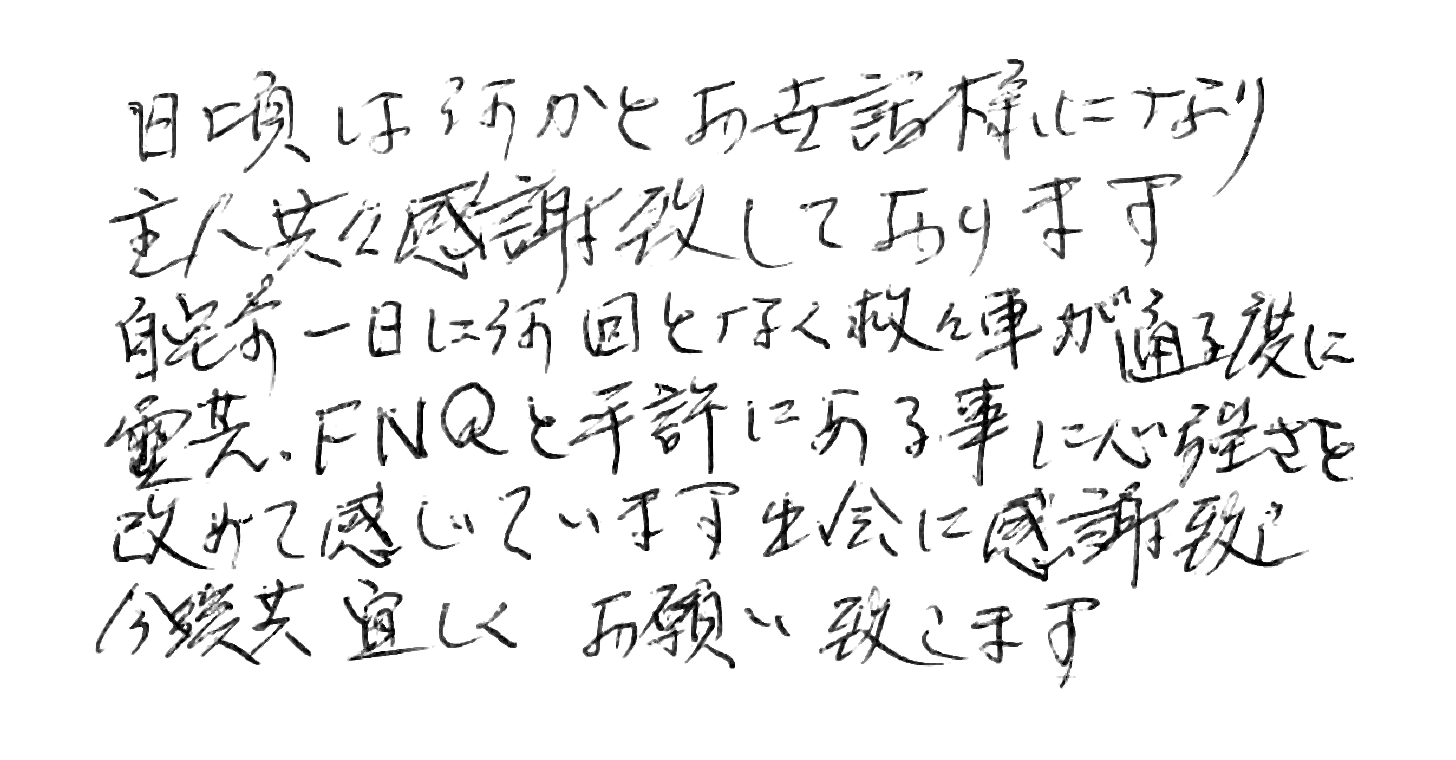 日頃は何かとお世話様になり
主人共々感謝致しております
自宅前一日に何回となく救々車が通る度に
霊芝、FNQと手許にある事に心強さを
改めて感じています出会に感謝致し
今後共宜しくお願い致します